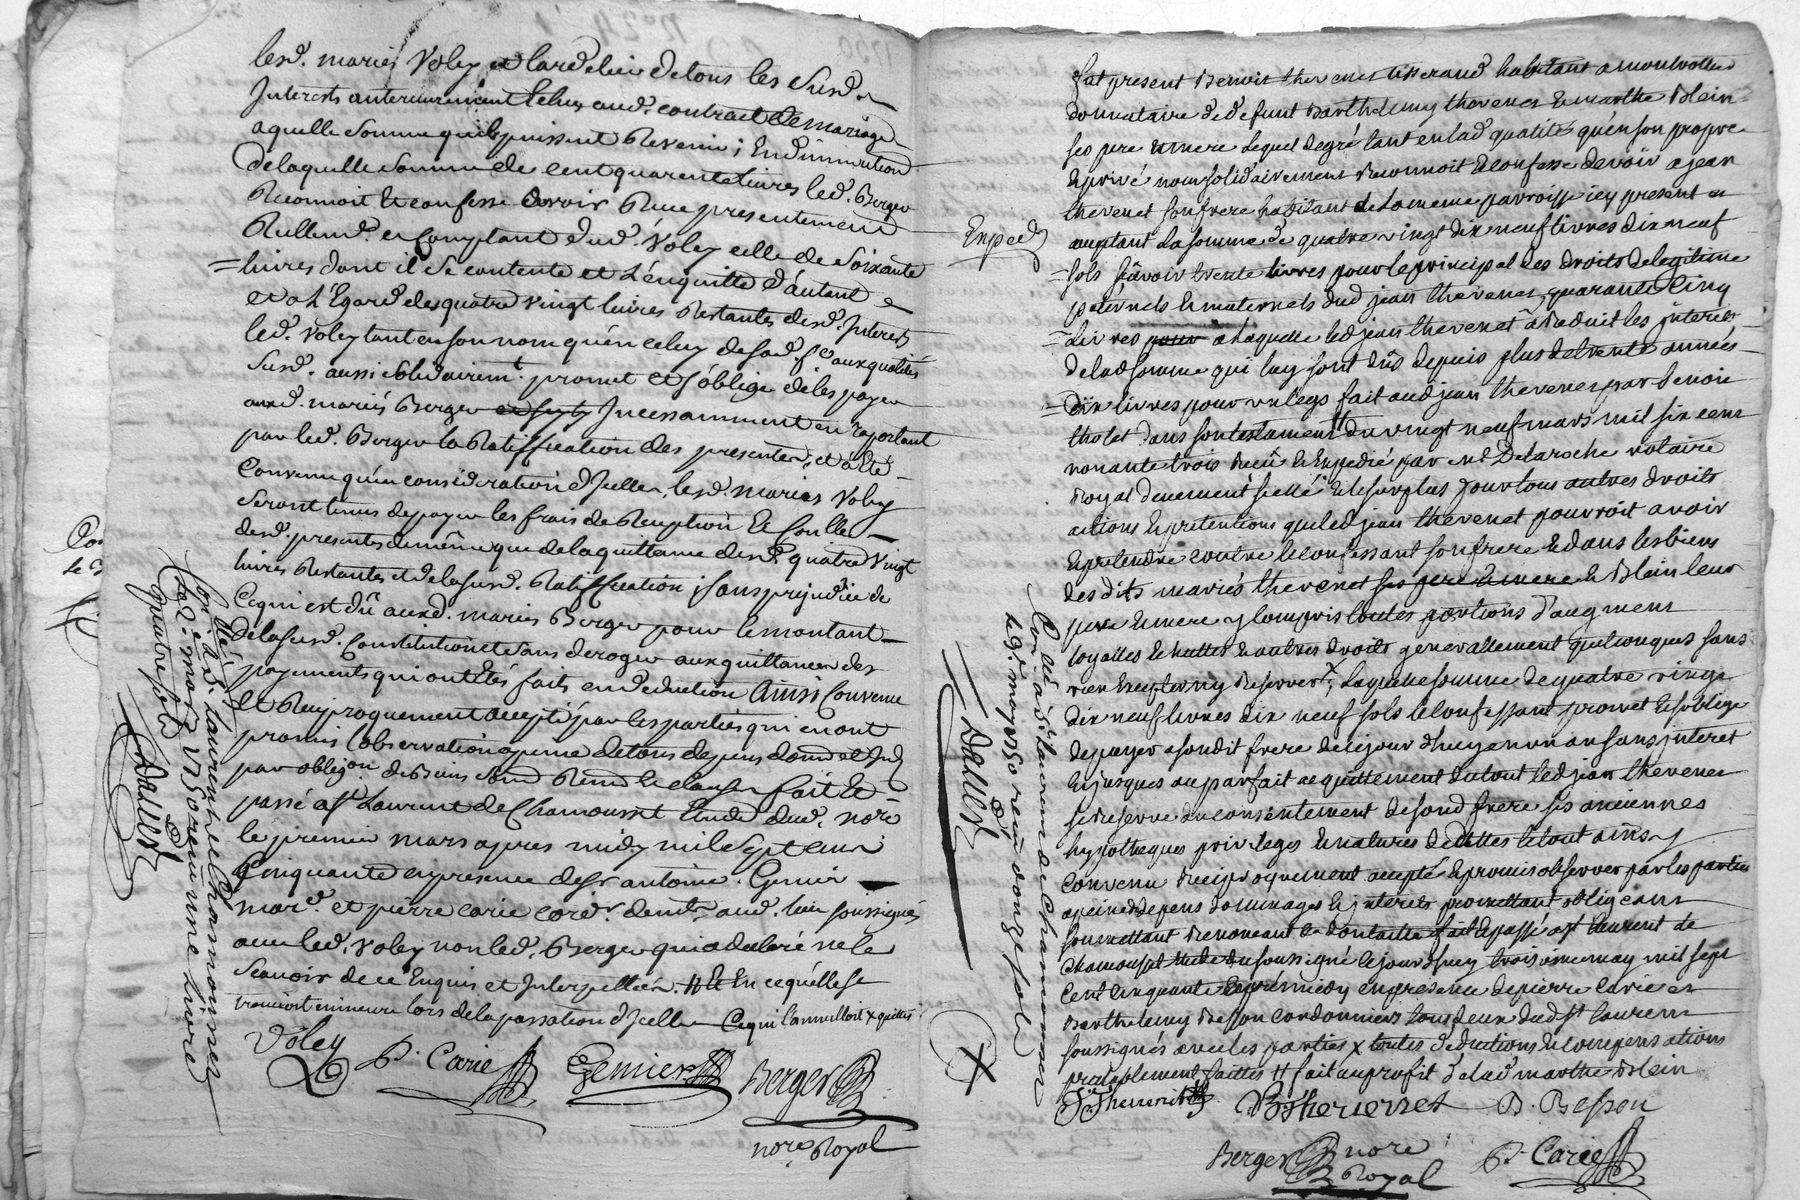 lesd. mariés Voley et lardelier de tous les susd.
Interests anterieurement echus aud. contrait de mariage
a quelle somme quils puissent Revenir ; En diminution
de laquelle somme de cent quarente livres led. Berger
Reconnoit et confesse avoir Reçu presentement
Reellemt. et Comptant dud. Voley celle de soixante
livres dont il se contente et l'enquitte d'autant
et a L'Egard des quatre vingt livres Restantes desd. Interets
led. Voley tant en son nom qu'en celuy de sad. fe. aux qualités
susd. aussi solidairemt. promet et s'oblige de les payer
auxd. mariés Berger Incessamment en raportant
par led. Berger la Ratiffication des presentes, et a Eté
Convenu qu'en consideration d'Icelles, lesd. mariés Voley
seront tenus de payer les frais de Reception et Conlle
desd. presentes de même que de la quittance desd. quatre vingt
livres Restantes et de la susd. Ratiffication ; sans prejudice de
Ce qui est dû auxd. mariés Berger pour le montant
de la susd. Constitution et sans deroger aux quittances des
payements qui ont Etés faits en deduction Ainsi Convenu
et Reciproquement accepté par les parties qui en ont
promis l'observation a peine de tous depens dom. et Int.
par obligon. de Biens soumd. Renond. et clauses fait et
passé a St Laurent de Chamousset Etude dud. nore
le premier mars apres midy mil sept cent
Cinquante en presence de sr antoine Gemier
mard. et pierre carie cordr. demts. aud. lieu soussignés
avec led. Voley non led. Berger qui a declaré ne le
scavoir de ce Enquis et Interpellé. # et En ce qu'elle se
trouvoit mineure lors de la passation d'Icelle Ce qui l'annulloit x quittes
Voley P. Carie Gemier Berger
nore Royal
Con.lé a St. Laurent de Chamousset
le 2e. mars 1750 reçu une livre
quatre sols
Dalliest
Expedié
fut present Benoit thevenet tisserand habitant a montrottier
donnataire de defunt Barthelemy thevenet et marthe Blein
ses pere et mere lequel de gré tant en lad qualité qu'en son propre
et privé nom solidairement Reconnoit et confesse devoir a jean
thevenet son frere habitant de la meme parroisse icy present et
acceptant la somme de quatre vingt dix neuf livres dix neuf
sols sçavoir trente livres pour le principal des droits de legitime
paternels et maternels dud jean thevenet, quarante cinq
Livres a laquelle led jean thevenet a Reduit les jnterets
de lad somme qui luy sont dûs depuis plus de trente années
Dix livres pour un legs fait aud jean thevenet par benoit
tholet dans son testament # du vingt neuf mars mil six cent
nonante trois Reçû et Expedié par Me Delaroche notaire
Royal deuement scellé et le surplus pour tous autres droits
actions et pretentions que led jean thevenet pourroit avoir
et pretendre contre le confessant son frere et dans les biens
des dits mariés thevenet et Blein leur
pere et mere y compris toutes portions d'augment
loyalles et autres droits generallement quelconques sans
rien Excepter ny Reserver x, laquelle somme de quatre vingt
dix neuf livres dix neuf sols le confessant promet et s'oblige
de payer a sondit frere de ce jour d'huy en un an sans jnteret
et jusques au parfait acquittement du tout led jean thevenet
se reserve du consentement de sond frere ses anciennes
hypotheques privileges et natures de dettes le tout ainsy
Convenu Reciproquement accepté et promis observer par les parties
a peine de depens dommages et jnterets promettant obligeant
soumettant Renonceant fait et passé a st laurent de
Chamousset Etude du soussigné le jour d'huy troisieme may mil sept
Cent cinquante apres midy en presence de pierre carie et
Barthelemy Besson cordonniers tous deux dud st laurent
soussignés avec les parties x toutes deductions et compensations
prealablement faittes # fait au profit de lad marthe Blein
J Thevenet B. thevenet B. Besson
Berger nore Royal P. Carie
Con.lé a St. laurent de Chamousset
le 9e. may 1750 reçu douze sols
Dalliest